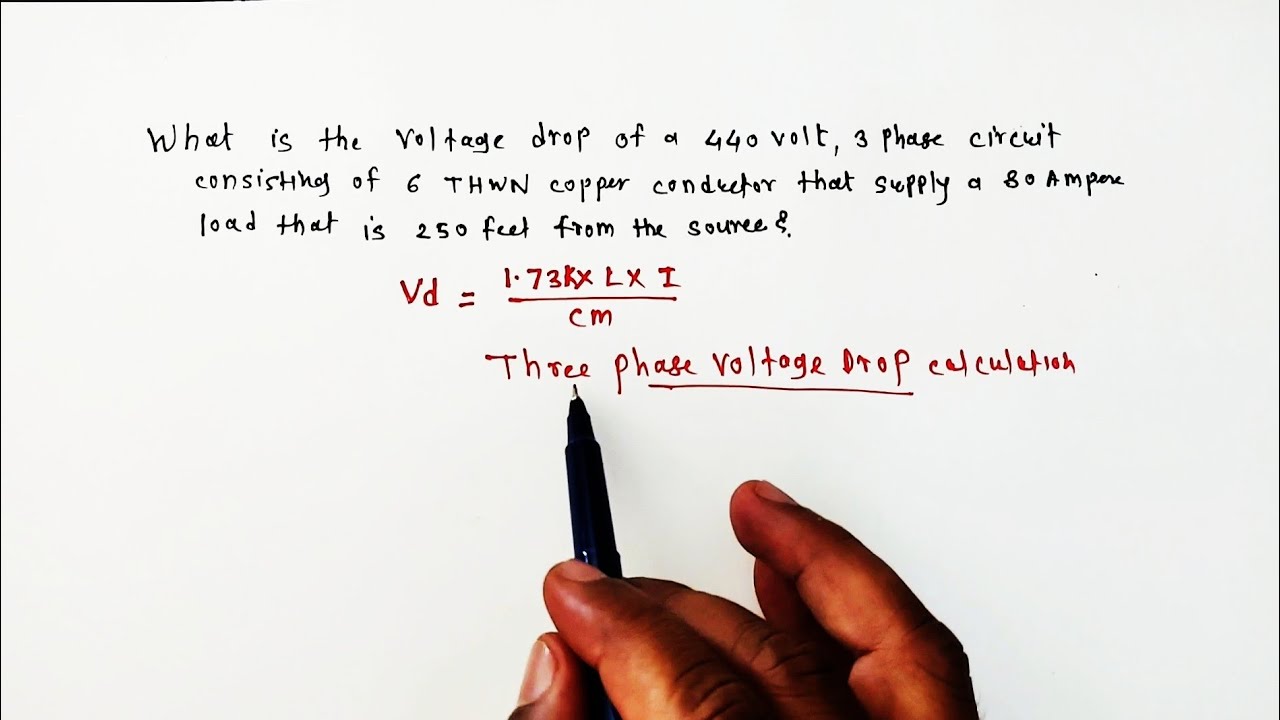 What is the voltage drop of a 440 volt, 3 phase circuit
consisting of 6 THWN copper conductor that supply a 80 Ampere
load that is 250 feet from the source?
Vd = 1.73K x L x I
cm
Three phase voltage Drop calculation